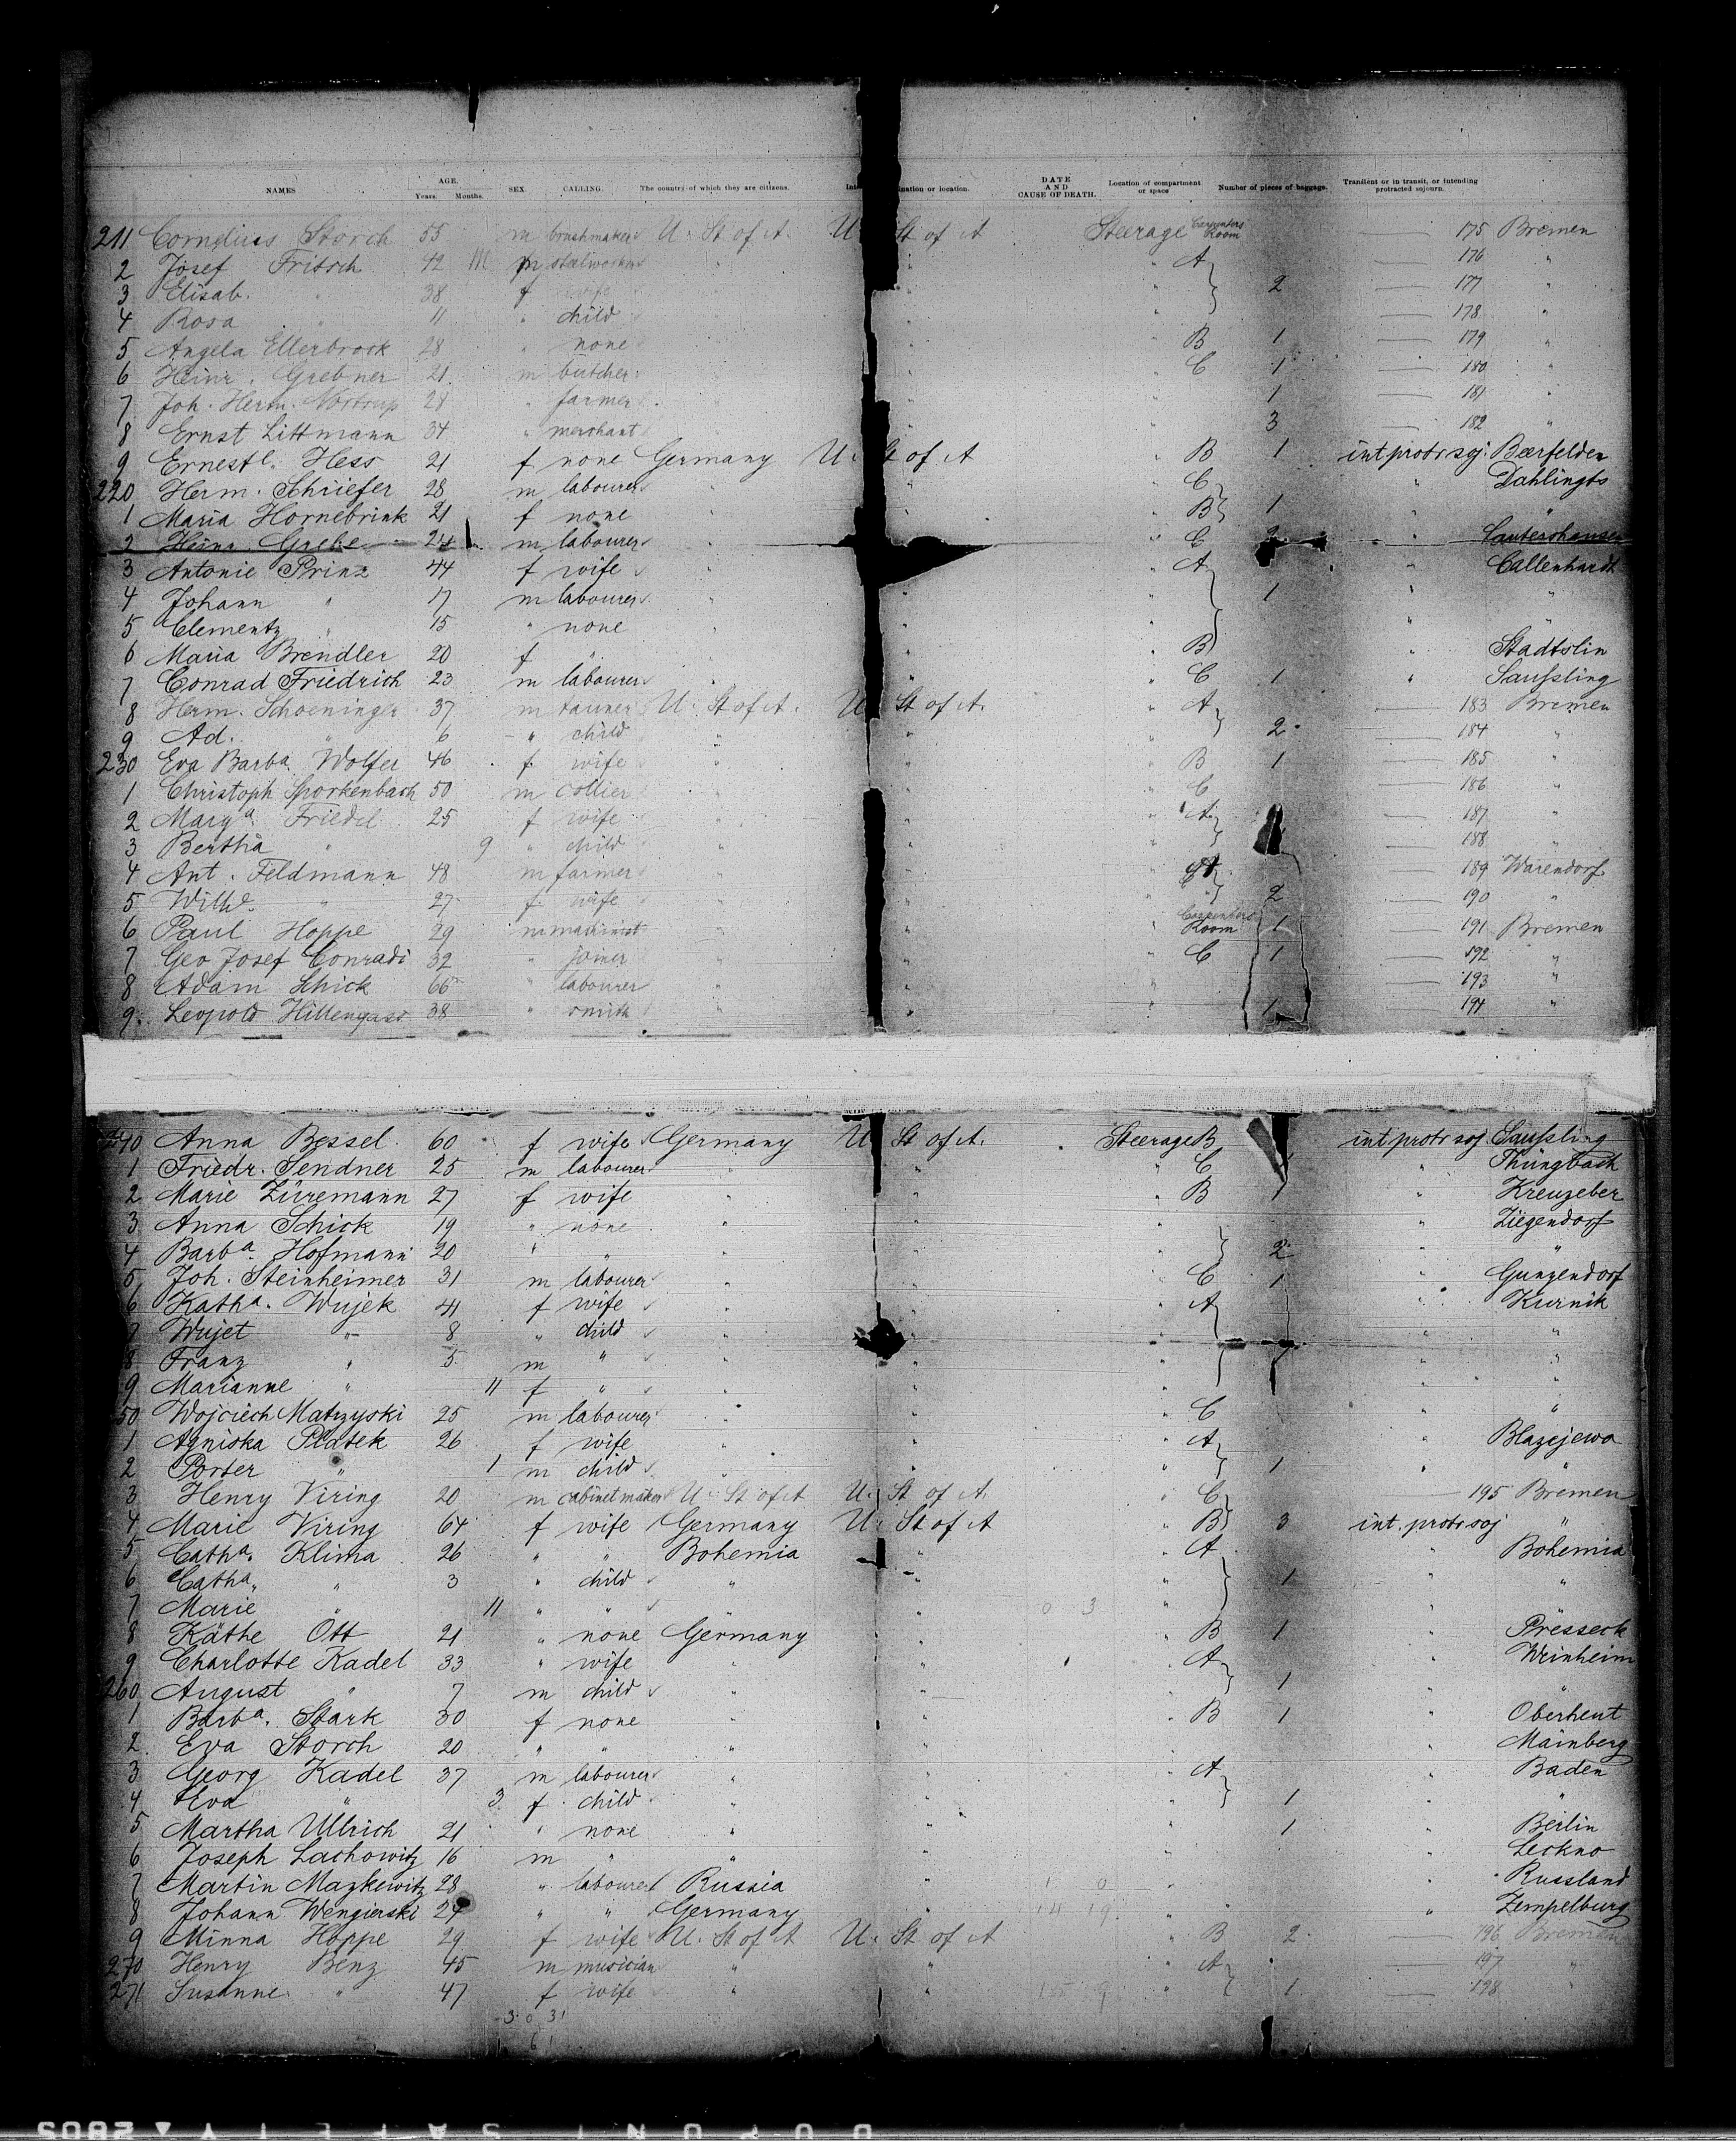 NAMES AGE. Years. Months. SEX. CALLING. The country of which they are citizens. nation or location. DATE AND CAUSE OF DEATH. Location of compartment or space Number of pieces of baggage. Transient or in transit, or intending protracted sojourn.
211 Cornelius Storch 55 m brushmaker U. St of A. U St of A Steerage Carpenters Room 175 Bremen
2 Josef Fritsch 42 m steelworker " " " A 176 "
3 Elisab. " 38 f wife " " " 2 177 "
4 Rosa " 11 " child " " " 178 "
5 Angela Ellerbrock 28 " none " " " B 1 179 "
6 Heinr. Grebner 21 m butcher " " " C 1 180 "
7 Joh. Herm. Nortrup 28 " farmer " " " 1 181 "
8 Ernst Littmann 34 " merchant " " " 3 182 "
9 Ernestl. Hess 21 f none Germany U. St of A " B 1 int protr soj. Beerfelden
220 Herm. Schriefer 28 m labourer " " " C " Dahlingts
1 Maria Hornebrink 21 f none " " " B 1 " "
2 Heinr. Grebe 24 m labourer " " " C 2 " Lautershausen
3 Antonie Prinz 44 f wife " " " A " Callenhardt
4 Johann " 17 m labourer " " " 1 " "
5 Clementz " 15 " none " " " " "
6 Maria Brendler 20 f " " " " B " Stadtslin
7 Conrad Friedrich 23 m labourer " " " C 1 " Saufsling
8 Herm. Schoeninger 37 m tanner U. St of A. U St of A. " A 183 Bremen
9 Ad. " 6 " child " " " 2 184 "
230 Eva Barba. Wolfer 46 f wife " " " B 1 185 "
1 Christoph Sporkenbach 50 m collier " " " C 186 "
2 Marga. Friedel 25 f wife " " " A 187 "
3 Bertha " 9 " child " " " 188 "
4 Ant. Feldmann 48 m farmer " " " 189 Warendorf
5 Wilhe. " 27 f wife " " " 2 190 "
6 Paul Hoppe 29 m machinist " " Carpenters Room 1 191 Bremen
7 Geo Josef Conradi 32 " joiner " " " C 1 192 "
8 Adam Schick 66 " labourer " " " 193 "
9. Leopold Hillengass 38 " smith " " " 1 194 "
240 Anna Bessel 60 f wife Germany U St of A. Steerage B int protr soj Saufsling
1 Friedr. Sendner 25 m labourer " " " C " Thüngbach
2 Marie Züremann 27 f wife " " " B 1 " Kreuzeber
3 Anna Schick 19 " none " " " " Ziegendorf
4 Barba. Hofmann 20 " " " " 2 " "
5 Joh. Steinheimer 31 m labourer " " " C 1 " Gunzendorf
6 Katha. Wujek 41 f wife " " " A " Kurnik
7 Wujet " 8 " child " " " " "
8 Franz " 5 m " " " " " "
9 Marianne " 11 f " " " " " "
50 Wojciech Matzyski 25 m labourer " " " C " "
1 Agniska Platek 26 f wife " " " A " Blazejewo
2 Porter " 1 m child " " " 1 " "
3 Henry Viring 20 m cabinetmaker U. St of A U. St of A. " C 195 Bremen
4 Marie Viring 64 f wife Germany U. St of A " B 3 int. protr soj "
5 Catha. Klima 26 " " Bohemia " " A " Bohemia
6 Catha. " 3 " child " " " 1 " "
7 Marie " 11 " " " " 0 3 " " "
8 Käthe Ott 21 " none Germany " " B 1 " Presseck
9 Charlotte Kadel 33 " wife " " " A " Weinheim
260 August " 7 m child " " " 1 " "
1 Barba. Stark 30 f none " " " B 1 " Oberheut
2 Eva Storch 20 " " " " " " Mainberg
3 Georg Kadel 37 m labourer " " " A " Baden
4 Eva " 3 f child " " " 1 " "
5 Martha Ullrich 21 " none " " " 1 " Berlin
6 Joseph Lachowitz 16 m " " " " " Leckno
7 Martin Mazkewitz 28 " labourer Russia " " " Russland
8 Johann Wengierski 24 " " Germany " 14 19 " " Zempelburg
9 Minna Hoppe 29 f wife U. St of A U. St of A " B 2 196 Bremen
270 Henry Benz 45 m musician " " " A 197 "
271 Susanne " 47 f wife " " " 1 198 "
3 0 3
6 1